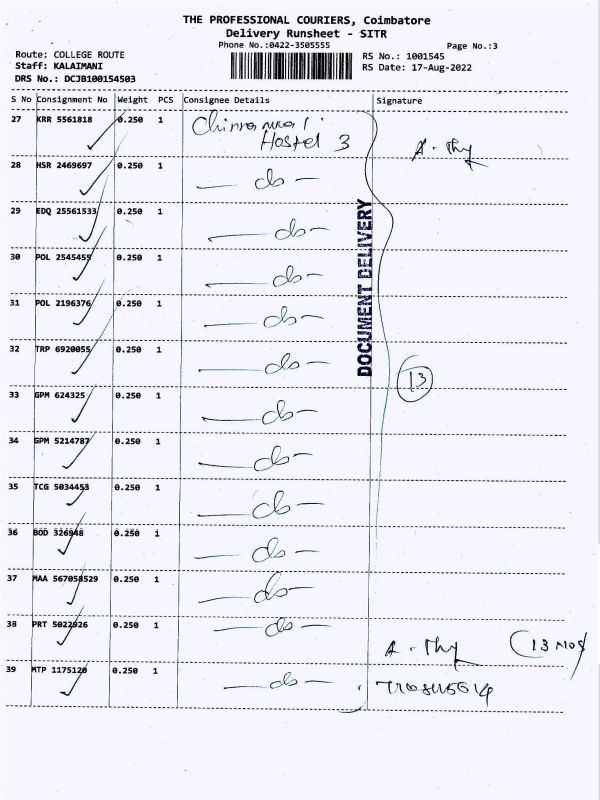 THE PROFESSIONAL COURIERS, Coimbatore
Delivery Runsheet - SITR
Phone No.:0422-3505555
Page No.:3
Route: COLLEGE ROUTE
Staff: KALAIMANI
DRS No.: DCJB100154503
RS No.: 1001545
RS Date: 17-Aug-2022
S No Consignment No Weight PCS Consignee Details Signature
27 KRR 5561818 0.250 1
Hostel 3
28 HSR 2469697 0.250 1 — do —
29 EDQ 25561533 0.250 1 — do —
30 POL 2545455 0.250 1 — do —
31 POL 2196376 0.250 1 — do —
32 TRP 6920055 0.250 1 — do —
33 GPM 624325 0.250 1 — do —
34 GPM 5214787 0.250 1 — do —
35 TCG 5034453 0.250 1 — do —
36 BOD 326948 0.250 1 — do —
37 MAA 567058529 0.250 1 — do —
38 PRT 5022926 0.250 1 — do —
39 MTP 1175120 0.250 1 — do —
DOCUMENT DELIVERY
13
(13 NOS